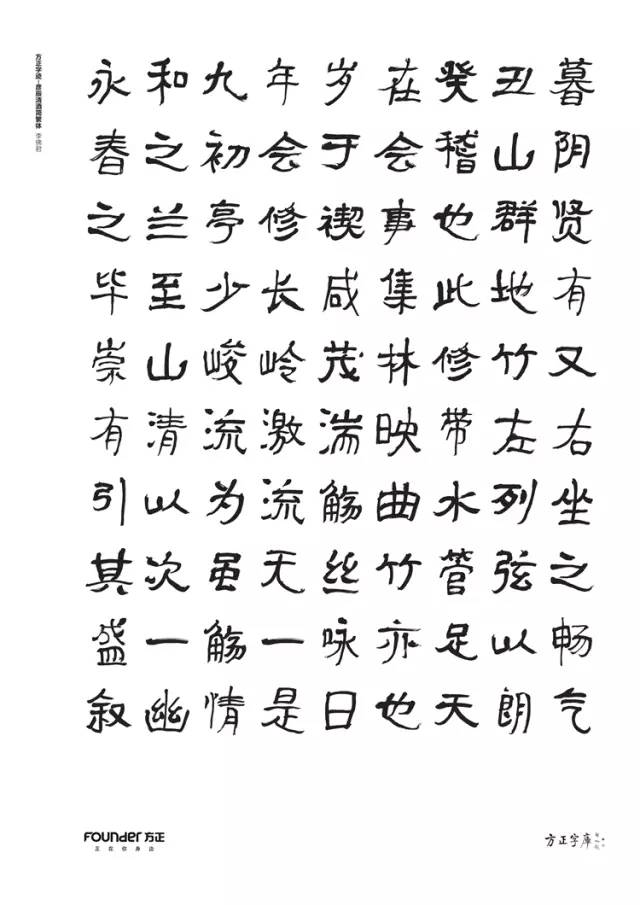 方正字迹-彦辰清酒简繁体 李镇君
永和九年岁在癸丑暮
春之初会于会稽山阴
之兰亭修禊事也群贤
毕至少长咸集此地有
崇山峻岭茂林修竹又
有清流激湍映带左右
引以为流觞曲水列坐
其次虽无丝竹管弦之
盛一觞一咏亦足以畅
叙幽情是日也天朗气
FOUNDER 方正
正在你身边
方正字库